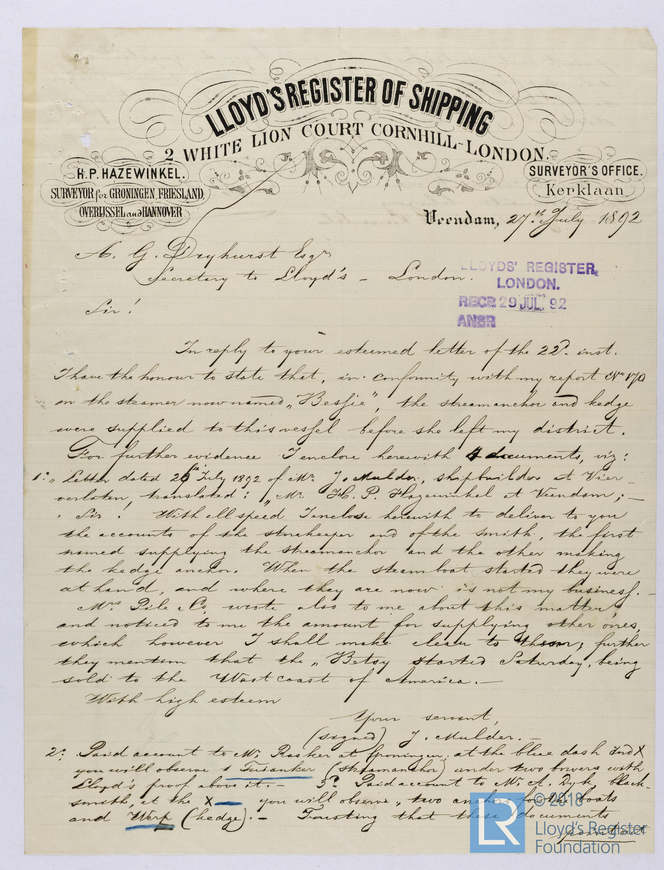 LLOYD'S REGISTER OF SHIPPING
2 WHITE LION COURT CORNHILL-LONDON.
H.P. HAZEWINKEL.
SURVEYOR for GRONINGEN, FRIESLAND,
OVERIJSSEL and HANNOVER
SURVEYOR'S OFFICE.
Kerklaan
Veendam, 27th July 1892
A. G. Dryhurst Esqr
Secretary to Lloyd's - London.
LLOYDS' REGISTER,
LONDON.
RECD 29 JUL. 92
ANSD
Sir!
In reply to your esteemed letter of the 22d. inst.
I have the honour to state that, in conformity with my report No
on the steamer now named "Bessie", the streamanchor and kedge
were supplied to this vessel before she left my district.
For further evidence I enclose herewith 4 documents, viz:
1: "Letter dated 26th July 1892 of Mr. J. Mulder, shipbuilder at Vier-
verlaten, translated: "Mr. H. P. Hazewinkel at Veendam; -
Sir! With all speed I enclose herewith to deliver to you
the accounts of the storekeeper and of the smith, the first
named supplying the streamanchor and the other making
the kedge anchor. When the steamboat started they were
at hand, and where they are now is not my business. -
Mrs Pile Co, wrote also to me about this matter
and noticed to me the amount for supplying other ones,
which however I shall make clear to them; further
they mention that the "Betsy started Saturday, being
sold to the West coast of America. -
With high esteem
Your servant,
(signed) J. Mulder. -
2: Paid account to Mr. Rasker at Groningen, at the blue dash and X
you will observe 1 Tuianker (streamanchor) under two bowers with
Lloyd's proof above it. - 3. Paid account to Mr. J. Dyk black-
smith, at the X you will observe, two anchors for the boats
and Werp (kedge). - Trusting that these documents
© 2018
LR
Lloyd's Register
Foundation